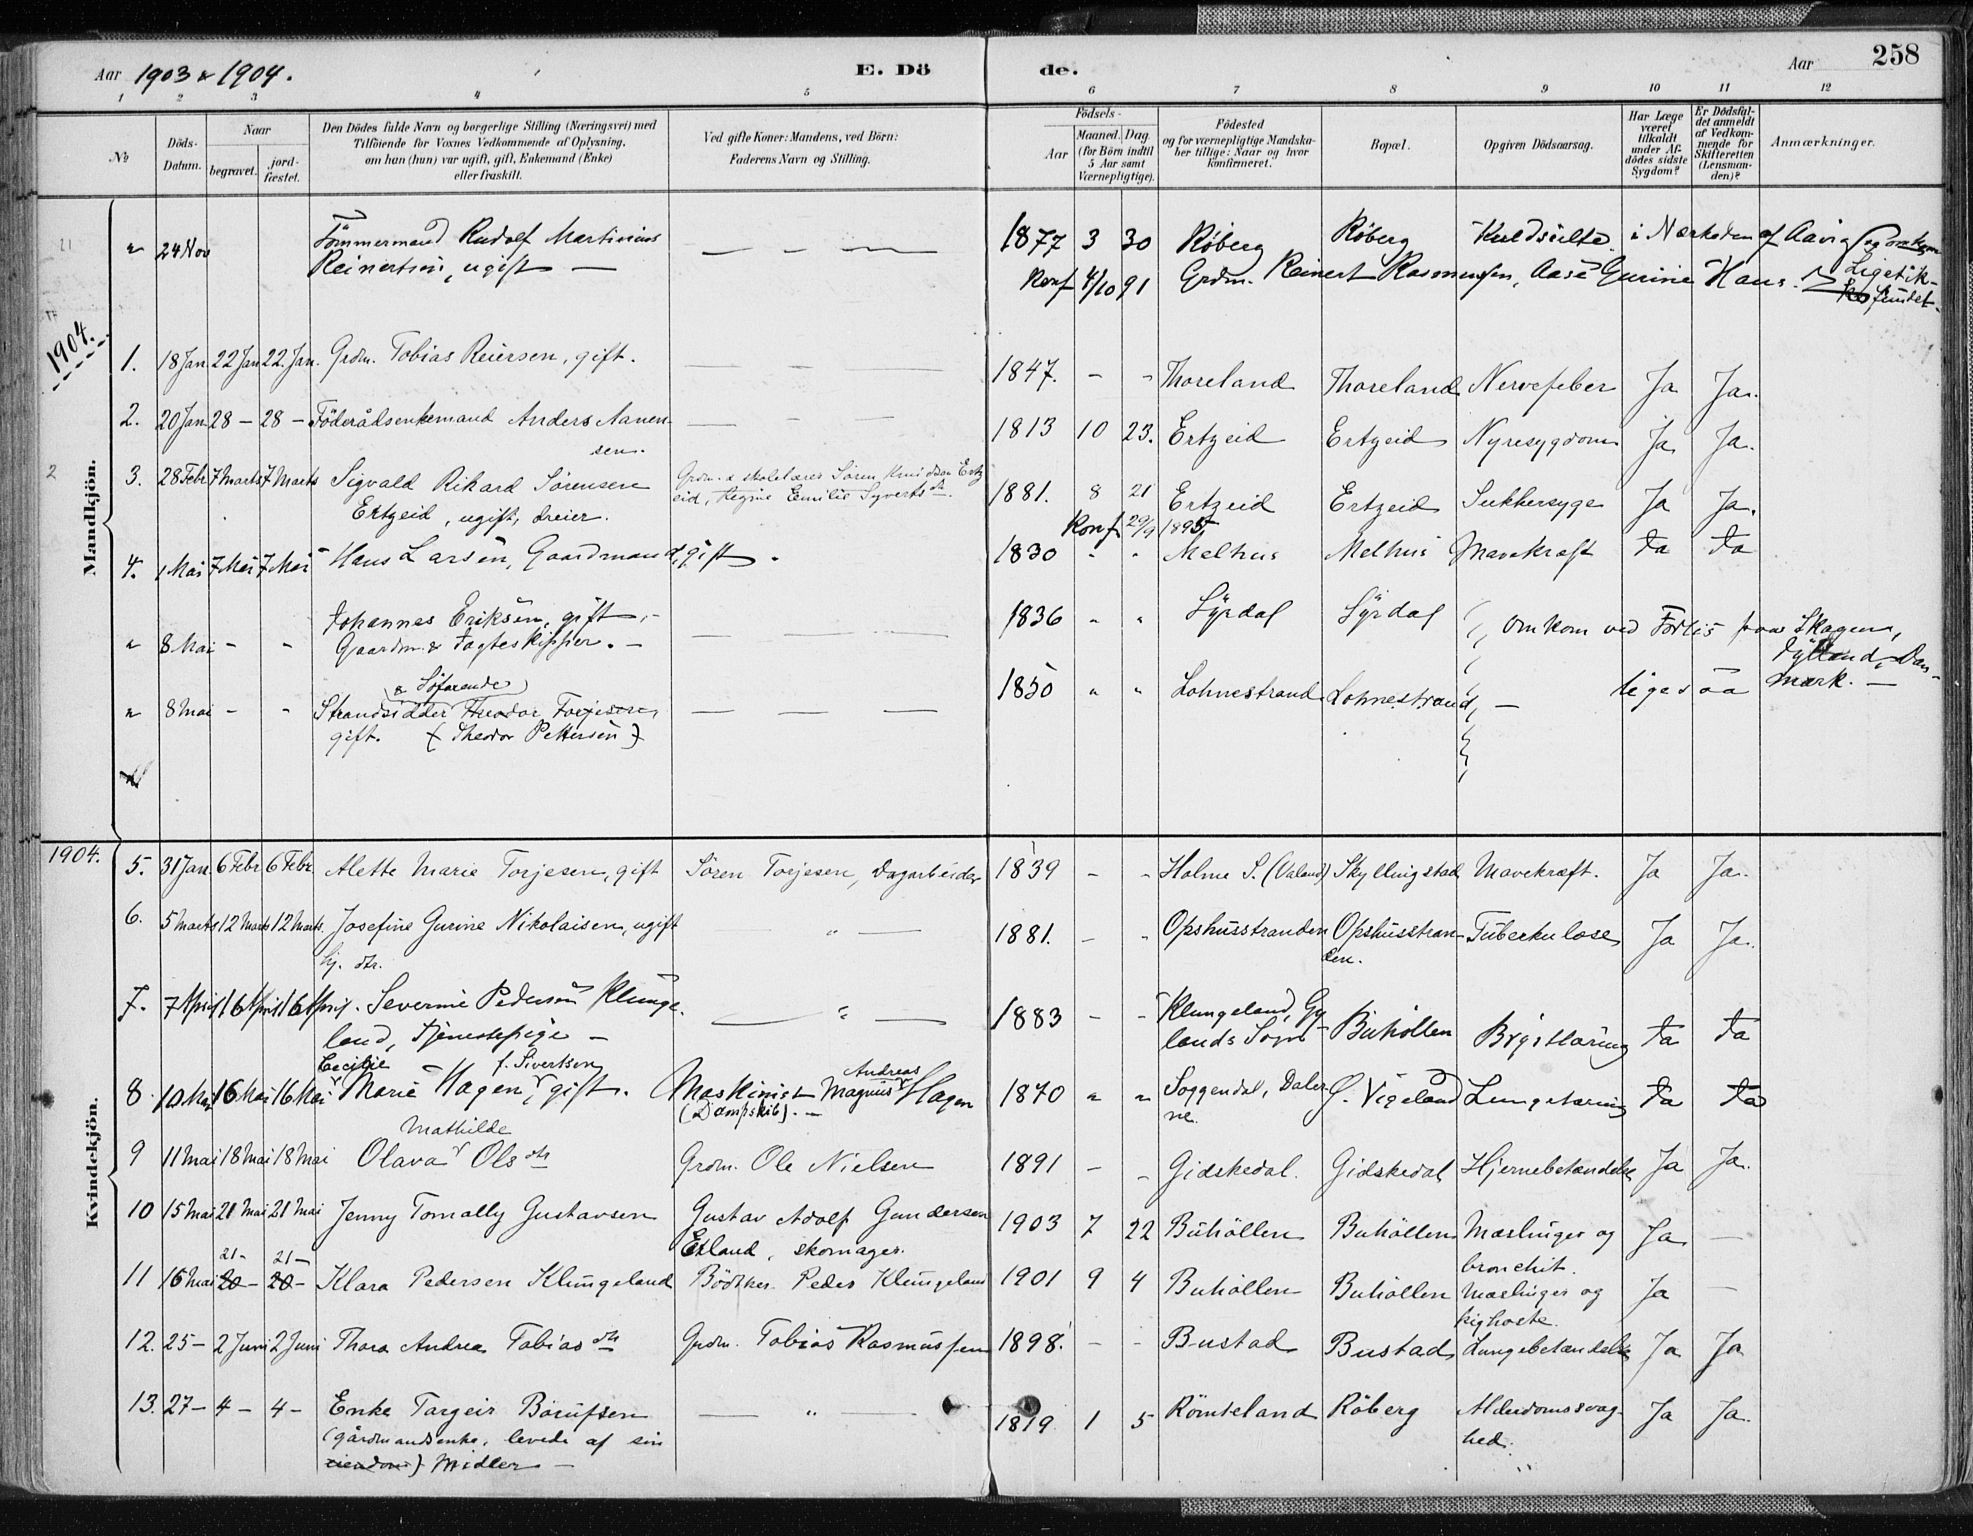 Aar 1903 & 1904. E. Dö de. Aar 258
1 2 3 4 5 6 7 8 9 10 11 12
No
Döds-Datum.
Naar
begravet.
jordfæstet.
Den Dödes fulde Navn og borgerlige Stilling (Næringsvei) med
Tilföiende for Voxnes Vedkommende af Oplysning,
om han (hun) var ugift, gift, Enkemand (Enke)
eller fraskilt.
Ved gifte Koner: Mandens, ved Börn:
Faderens Navn og Stilling.
Födsels-
Aar
Maaned. Dag.
(for Börn indtil
5 Aar samt
Værnepligtige).
Födested
og for værnepligtige Mandska-
ber tillige: Naar og hvor
konfirmeret.
Bopæl.
Opgiven Dödsaarsag.
Har Læge
været
tilkaldt
under Af-
dödes sidste
Sygdom?
Er Dödsfal-
det anmeldt
af Vedkom-
mende for
Skifteretten
(Lensman-
den)?
Anmærkninger.
Mandkjön.
21 " 24 Nov Tömmermand Rudolf Martinius — — — 1877 3 30 Röberg Röberg Kuldseilte i Nærheden af
Reinertsen, ugift — Konf 4/10 91 Grdm. Reinert Rasmussen, Aase Gurine Hans.
Liget ik-
ke fundet.
1904.
1. 18 Jan 22 Jan 22. Jan. Grdm. Tobias Reiersen, gift. — — — 1847. - - Thoreland Thoreland Nervefeber Ja Ja.
2. 20 Jan 28 - 28 - Föderådsenkemand Anders Aanen- — - — 1813 10 23. Ertzeid Ertzeid Nyresygdom Ja Ja.
sen.
2 3. 28 Febr 7 Marts 7 Marts Sigvald Rikard Sörensen Grdm. & skolelærer Sören Knudsen Ertz 1881. 8 21 Ertzeid Ertzeid Sukkersyge Ja Ja.
Ertzeid, ugift, dreier. eid, Regine Emilie Syverts dtr. Konf 29/9 1895
4. 1 Mai 7 Mai 7 Mai Hans Larsen, Gaardmand, gift. 1830 " " Melhus Melhus Mavekræft Ja Ja
Johannes Eriksen, gift, - 1836 " " Syrdal Syrdal omkom ved Forlis paa Skagen,
" 8 Mai - " Gaardm. & Jagteskipper. - — — — Jylland, Dan-
& Söfarende 1850 " " Lohnestrand Lohnestrand, — ligesaa mark. —
" 8 mai - " Strandsidder Theodor Torjesen, — — —
gift. (Theodor Pettersen)
Kvindekjön.
1904. 5. 31 Jan 6 Febr 6 Febr. Alette Marie Torjesen, gift Sören Torjesen, Dagarbeider 1839 - - Holme S. (Valand) Skyllingstad Mavekræft. Ja Ja.
6. 5 Marts 12 Marts 12 Marts. Josefine Gurine Nikolaisen, ugift — " — 1881. - - Opshusstranden Opshusstran- Tuberkulose Ja Ja.
hj. dtr. den.
7. 7 April 16 April 16 April. Severine Pedersen Klunge- — " — 1883 - - Klungeland, Gy- Buhöllen Brysttæring Ja Ja
land, Tjenestepige — lands Sogn
Cecilie f. Sivertsen Andreas
8. 10 Mai 16 Mai 16 Mai Marie Hagen, gift. Maskinist Magnus Hagen 1870 " " Soggendal, Daler- Ö. Vigeland Lungetæring Ja Ja
(Dampskib). — ne.
Mathilde
9 11 Mai 18 Mai 18 Mai Olava Ols dtr Grdm. Ole Nielsen 1891 - - Gidskedal. Gidskedal Hjernebetændelse Ja Ja.
10 15 Mai 21 Mai 21 Mai Jenny Tomally Gustavsen Gustav Adolf Gundersen 1903 7 22 Buhöllen Buhöllen Mæslinger og Ja —
Eeland, skomager. bronchit.
21- 21-
11 16 Mai 20- 20- Klara Pedersen Klungeland Bödtker Peder Klungeland 1901 9 4 Buhöllen Buhöllen Mæslinger og Ja —
kighoste.
12. 25 - 2 Juni 2 Juni Thora Andrea Tobias dtr Grdm. Tobias Rasmussen 1898. - - Bustad Bustad Lungebetændelse Ja Ja
13. 27 - 4 - 4 - Enke Targeir Börufsen — " — 1819 1 5 Römteland Röberg Alderdomssvag- Ja Ja.
(gårdmandsenke, levede af sin hed.
eiendom) Midler —